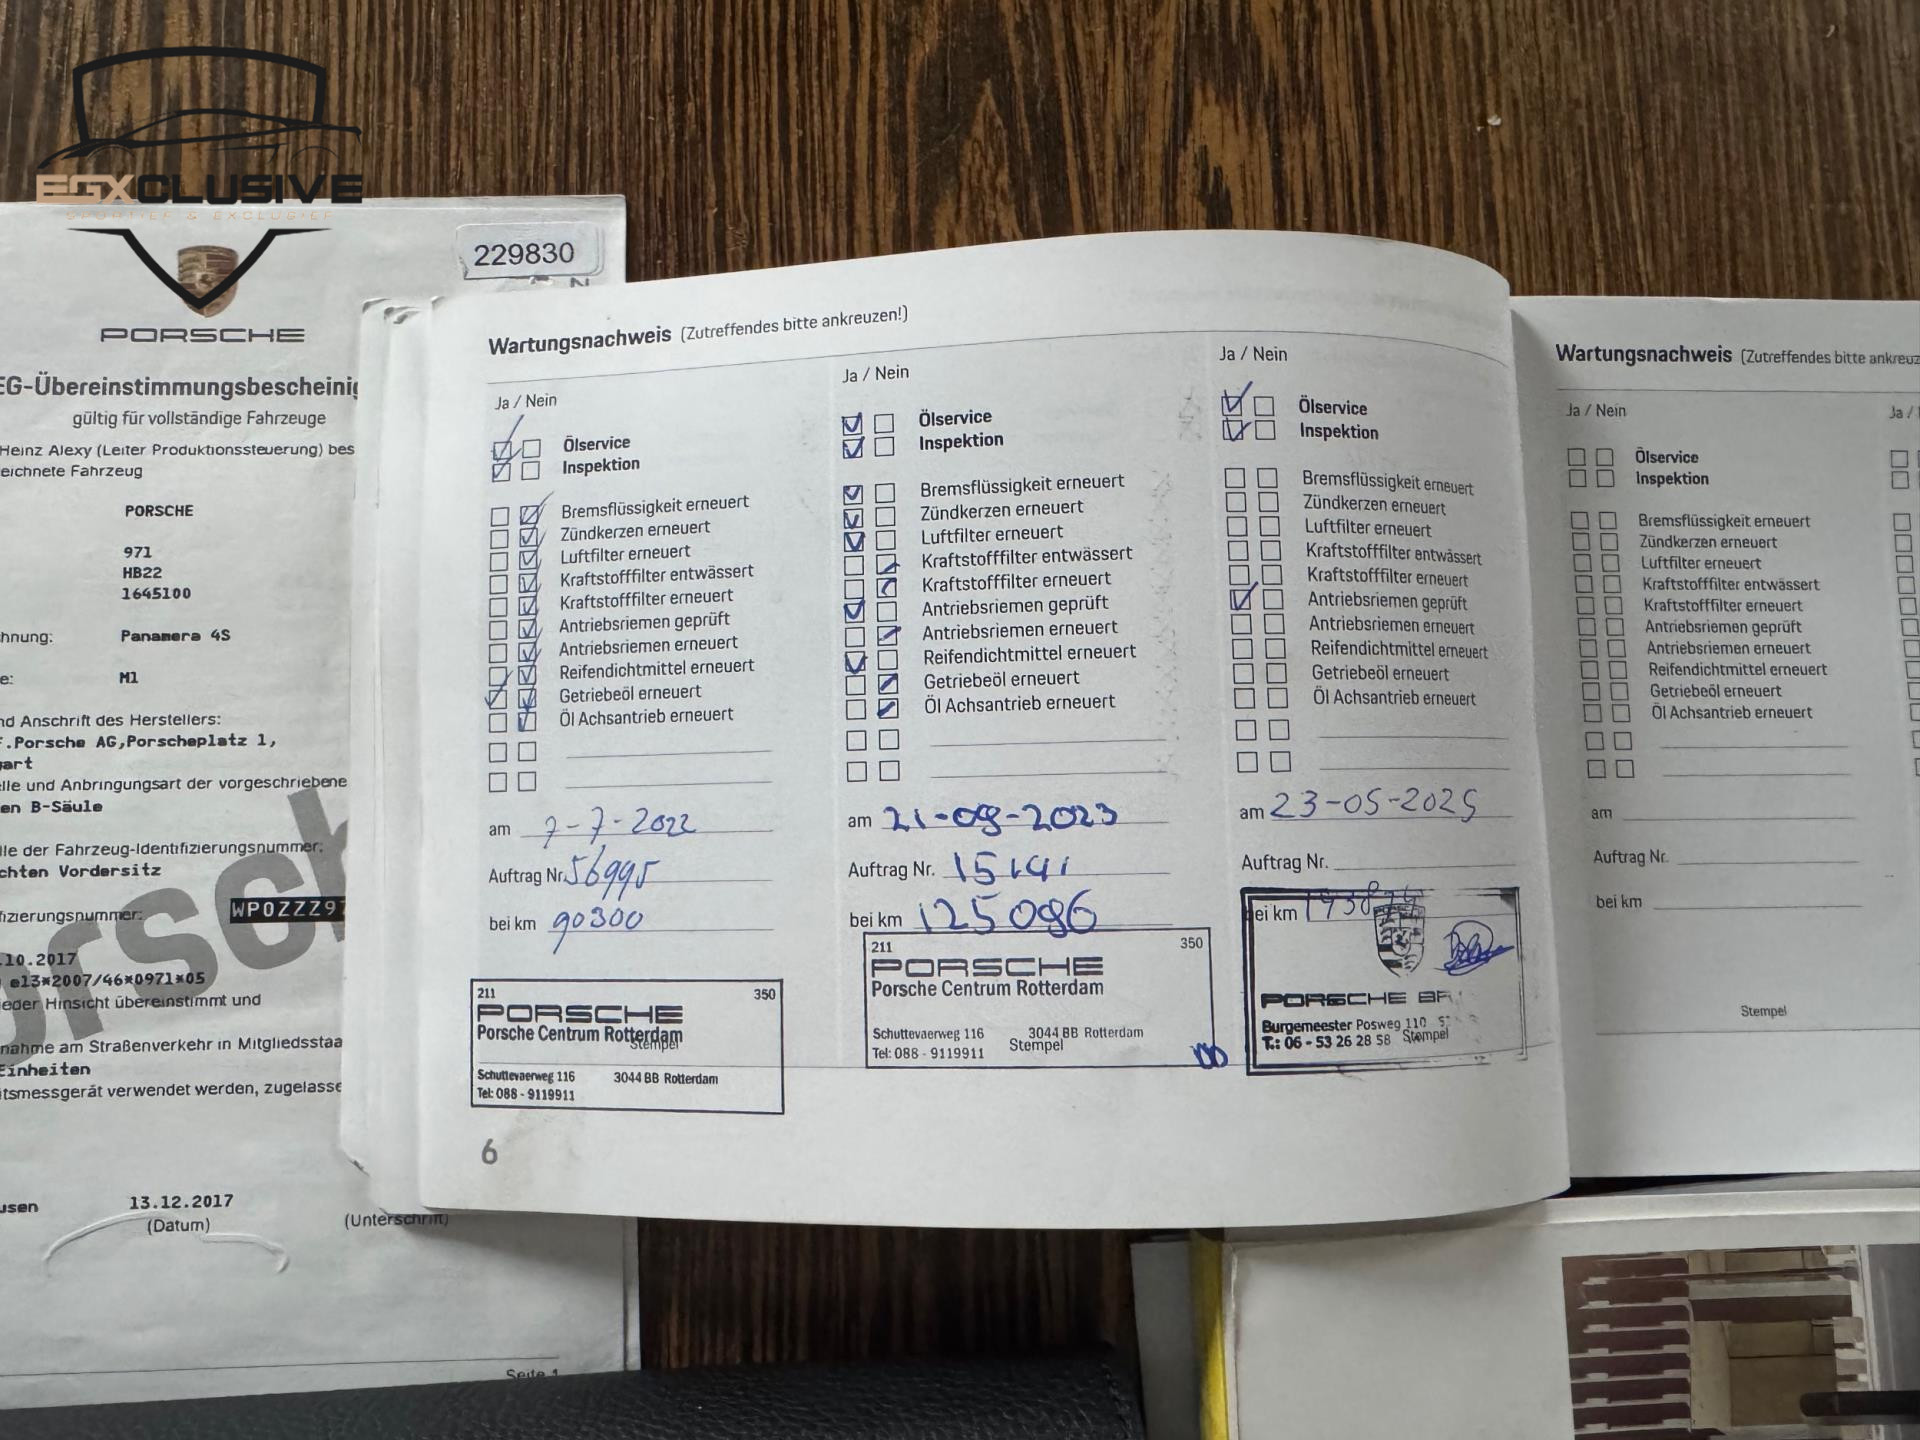 EGXCLUSIVE
SPORTIEF & EXCLUSIEF
229830
PORSCHE
EG-Übereinstimmungsbescheinig
gültig für vollständige Fahrzeuge
Heinz Alexy (Leiter Produktionssteuerung) bes
eichnete Fahrzeug
PORSCHE
971
HB22
1645100
hnung: Panamera 4S
e: M1
nd Anschrift des Herstellers:
F.Porsche AG,Porscheplatz 1,
gart
elle und Anbringungsart der vorgeschriebene
en B-Säule
lle der Fahrzeug-Identifizierungsnummer:
chten Vordersitz
fizierungsnummer: WP0ZZZ97
.10.2017
e13*2007/46*0971*05
jeder Hinsicht übereinstimmt und
nahme am Straßenverkehr in Mitgliedsstaa
Einheiten
itsmessgerät verwendet werden, zugelasse
usen 13.12.2017
(Datum) (Unterschrift)
Seite 1
Wartungsnachweis (Zutreffendes bitte ankreuzen!)
Ja / Nein
Ölservice
Inspektion
Bremsflüssigkeit erneuert
Zündkerzen erneuert
Luftfilter erneuert
Kraftstofffilter entwässert
Kraftstofffilter erneuert
Antriebsriemen geprüft
Antriebsriemen erneuert
Reifendichtmittel erneuert
Getriebeöl erneuert
Öl Achsantrieb erneuert
am 7-7-2022
Auftrag Nr. 56995
bei km 90300
211 350
PORSCHE
Porsche Centrum Rotterdam
Stempel
Schuttevaerweg 116 3044 BB Rotterdam
Tel: 088 - 9119911
6
Ja / Nein
Ölservice
Inspektion
Bremsflüssigkeit erneuert
Zündkerzen erneuert
Luftfilter erneuert
Kraftstofffilter entwässert
Kraftstofffilter erneuert
Antriebsriemen geprüft
Antriebsriemen erneuert
Reifendichtmittel erneuert
Getriebeöl erneuert
Öl Achsantrieb erneuert
am 21-08-2023
Auftrag Nr.
bei km 125086
211 350
PORSCHE
Porsche Centrum Rotterdam
Schuttevaerweg 116 3044 BB Rotterdam
Tel: 088 - 9119911 Stempel
Ja / Nein
Ölservice
Inspektion
Bremsflüssigkeit erneuert
Zündkerzen erneuert
Luftfilter erneuert
Kraftstofffilter entwässert
Kraftstofffilter erneuert
Antriebsriemen geprüft
Antriebsriemen erneuert
Reifendichtmittel erneuert
Getriebeöl erneuert
Öl Achsantrieb erneuert
am 23-05-2025
Auftrag Nr.
bei km
PORSCHE BR
Burgemeester Posweg 110
T.: 06 - 53 26 28 58 Stempel
Wartungsnachweis (Zutreffendes bitte ankreuz
Ja / Nein
Ölservice
Inspektion
Bremsflüssigkeit erneuert
Zündkerzen erneuert
Luftfilter erneuert
Kraftstofffilter entwässert
Kraftstofffilter erneuert
Antriebsriemen geprüft
Antriebsriemen erneuert
Reifendichtmittel erneuert
Getriebeöl erneuert
Öl Achsantrieb erneuert
am
Auftrag Nr.
bei km
Stempel
Ja /